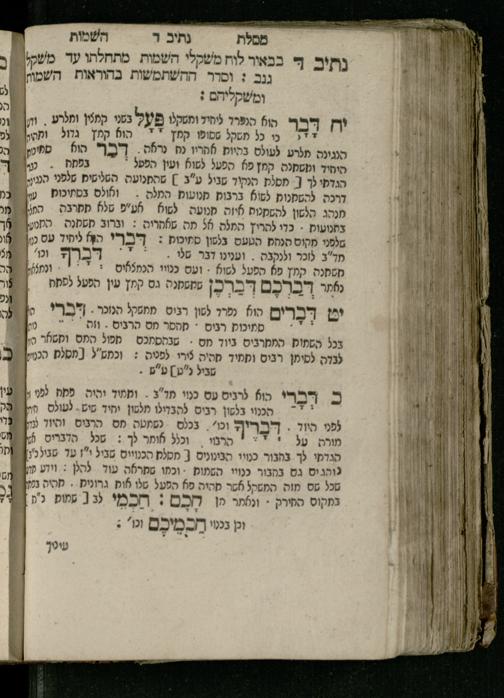 מסלת נתיב ד השמות
נתיב ד בבאור לוח משקלי השמות מתחלתו עד משקל
גנב : וסדר ההשתמשות בהוראות השמות
ומשקליהם :
יח דָּבָר הוא הנפרד ליחיד ומשקלו פָּעָל בשני קמצין ומלרע . ודע
כי כל משקל שסופו קמץ הוא קמץ גדול ותהיה
הנגינה מלרע לעולם בהיות אחריו נח נראה . דְּבַר הוא סמיכות
היחיד ומשתנה קמץ פא הפעל לשוא ועין הפעל בפתח . כבר
הגדתי לך [ מסלת הנקוד שביל ע״ב ] שהתנועה השלישית שלפני הנגינה
דרכה להשתנות לשוא ברבות תנועות המלה . ואולם בסמיכות עוד
מנהג הלשון להשתנות איזה תנועה לשוא אע״פ שלא תתרבה המלה
בתנועות . כדי להריץ המלה אל מה שאחריה : וברוב תשתנה התנועה
שלפני מקום הנחת הטעם בלשון סמיכות : דְּבָרִי הוא ליחיד עם כנוי
מד״ב לזכר ולנקבה . וענינו דבר שלי . דְּבָרְךָ וכו׳
משתנה קמץ פא הפעל לשוא . ועם כנויי הנמלאים ונמלאת
נאמר דְּבַרְכֶם דְּבַרְכֶן שמשתנה גם קמץ עין הפעל לפתח
יט דְּבָרִים הוא נפרד לשון רבים ממשקל הנזכר . דִּבְרֵי הוא
סמיכות רבים . תחסר מם הרבים . וזה
בכל השמות המתרבים ביוד מם . שבהסמכם תפול המם ותשאר היוד
לבדה לסימן רבים ותמיד תהיה צירי לפניה : וכמש״ל [ מסלת הכנויים
שביל כ״ט ] ע״ש .
כ דְּבָרַי הוא לרבים עם כנוי מד״ב . ותמיד יהיה פתח לפני יוד
הכנוי בלשון רבים להבדילו מלשון יחיד שיש לעולם חירק
לפני היוד . דְּבָרֶיךָ וכו׳ . בכלם נשמטה מם הרבים והיוד לבדה
מורה על הרבוי . וכלל אומר לך : שכל הדברים אשר
הגדתי לך בחבור כנויי הבינונים [ מסלת הכנויים שביל י״ז עד שביל כ״ב ]
נוהגים גם בחבור כנויי השמות . וכמו שתראה עוד להלן : וידע תדע
שכל שם מזה המשקל אשר תהיה פא הפעל שלו אות גרונית . תהיה בפתח
במקום החירק . ונאמר מן חָכָם : חַכְמֵי לב [ שמות כ״ח ]
וכן בכנוי חַכְמֵיכֶם וכו׳ :